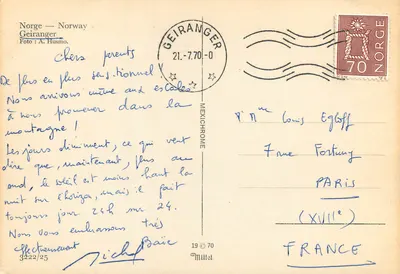 Norge — Norway
Geiranger
Foto : A. Husmo.
Chers parents
De plus en plus sensationnel !
Nous arrivons même aux escales
à nous promener dans la
montagne !
Les jours diminuent, ce qui veut
dire que, maintenant, plus au
sud, le soleil est moins haut la
nuit sur l'horizon, mais il fait
toujours jour 24h sur 24.
Nous vous embrassons très
affectueusement
Michel
3222/25
MEXICHROME
19 © 70
Mittet
GEIRANGER
21.-7.70-0
NORGE
70
Mme Louis Egloff
7 rue Fortuny
PARIS
(XVIIe)
FRANCE